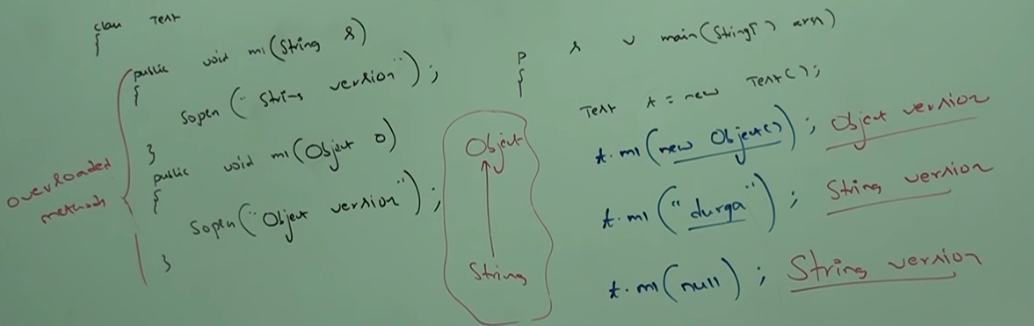 class Test
{
public void m1(String s)
{
Sopln("String version");
}
public void m1(Object o)
{
Sopln("Object version");
}
overloaded
methods
Object
String
p s v main(String[] args)
{
Test t = new Test();
t.m1(new Object()); Object version
t.m1("durga"); String version
t.m1(null); String version